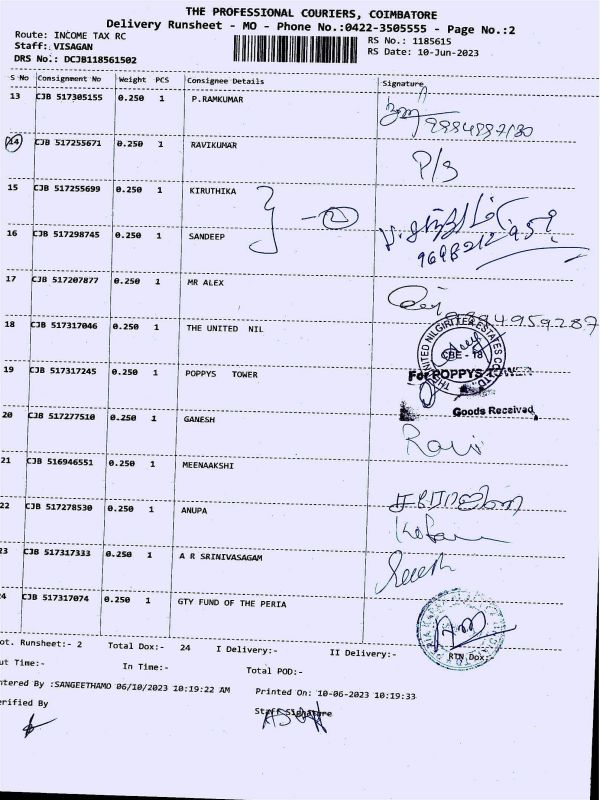 THE PROFESSIONAL COURIERS, COIMBATORE
Delivery Runsheet - MO - Phone No.:0422-3505555 - Page No.:2
Route: INCOME TAX RC
RS No.: 1185615
Staff: VISAGAN
RS Date: 10-Jun-2023
DRS No.: DCJB118561502
S No Consignment No Weight PCS Consignee Details Signature
13 CJB 517305155 0.250 1 P.RAMKUMAR
14 CJB 517255671 0.250 1 RAVIKUMAR P/S
15 CJB 517255699 0.250 1 KIRUTHIKA
16 CJB 517298745 0.250 1 SANDEEP
17 CJB 517207877 0.250 1 MR ALEX
18 CJB 517317046 0.250 1 THE UNITED NIL
THE UNITED NILGIRI TEA ESTATES CO LTD
CBE - 18
19 CJB 517317245 0.250 1 POPPYS TOWER For POPPYS TOWER
Goods Received
20 CJB 517277510 0.250 1 GANESH Ravi
21 CJB 516946551 0.250 1 MEENAAKSHI
22 CJB 517278530 0.250 1 ANUPA
23 CJB 517317333 0.250 1 A R SRINIVASAGAM
24 CJB 517317074 0.250 1 GTY FUND OF THE PERIA
ot. Runsheet:- 2 Total Dox:- 24 I Delivery:- II Delivery:- RTN Dox:-
ut Time:- In Time:- Total POD:-
ntered By :SANGEETHAMO 06/10/2023 10:19:22 AM Printed On: 10-06-2023 10:19:33
erified By Staff Signature